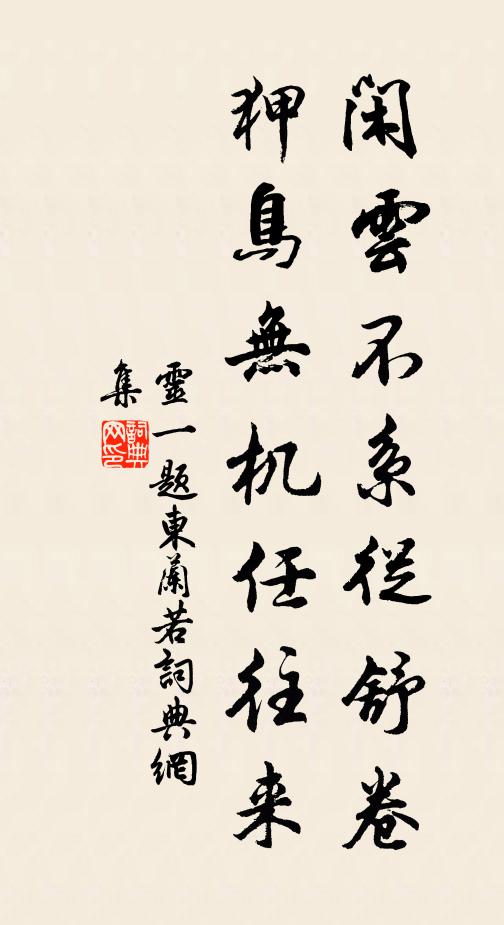 閑雲不系從舒卷
狎鳥無机任往来
靈一題東蘭若詞典網
集
詞典网印